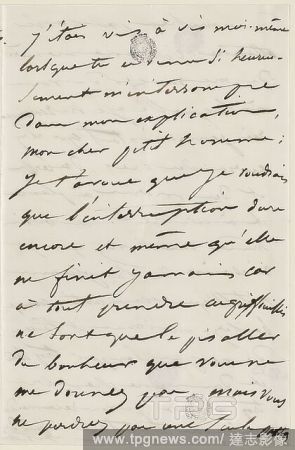 j'étais vis à vis moi-même
lorsque tu es venu si heureu-
sement m'interrompre
dans mon explication,
mon cher ptit homme;
je t'avoue que je voudrais
que l'interruption dure
encore et même qu'elle
ne finît jamais car
à tout prendre ces
ne sont que le pis aller
du bonheur que vous ne
me donnez pas, mais vous
ne perdrez pas une seule
TPG
www.tpgnews.com / 達志影像